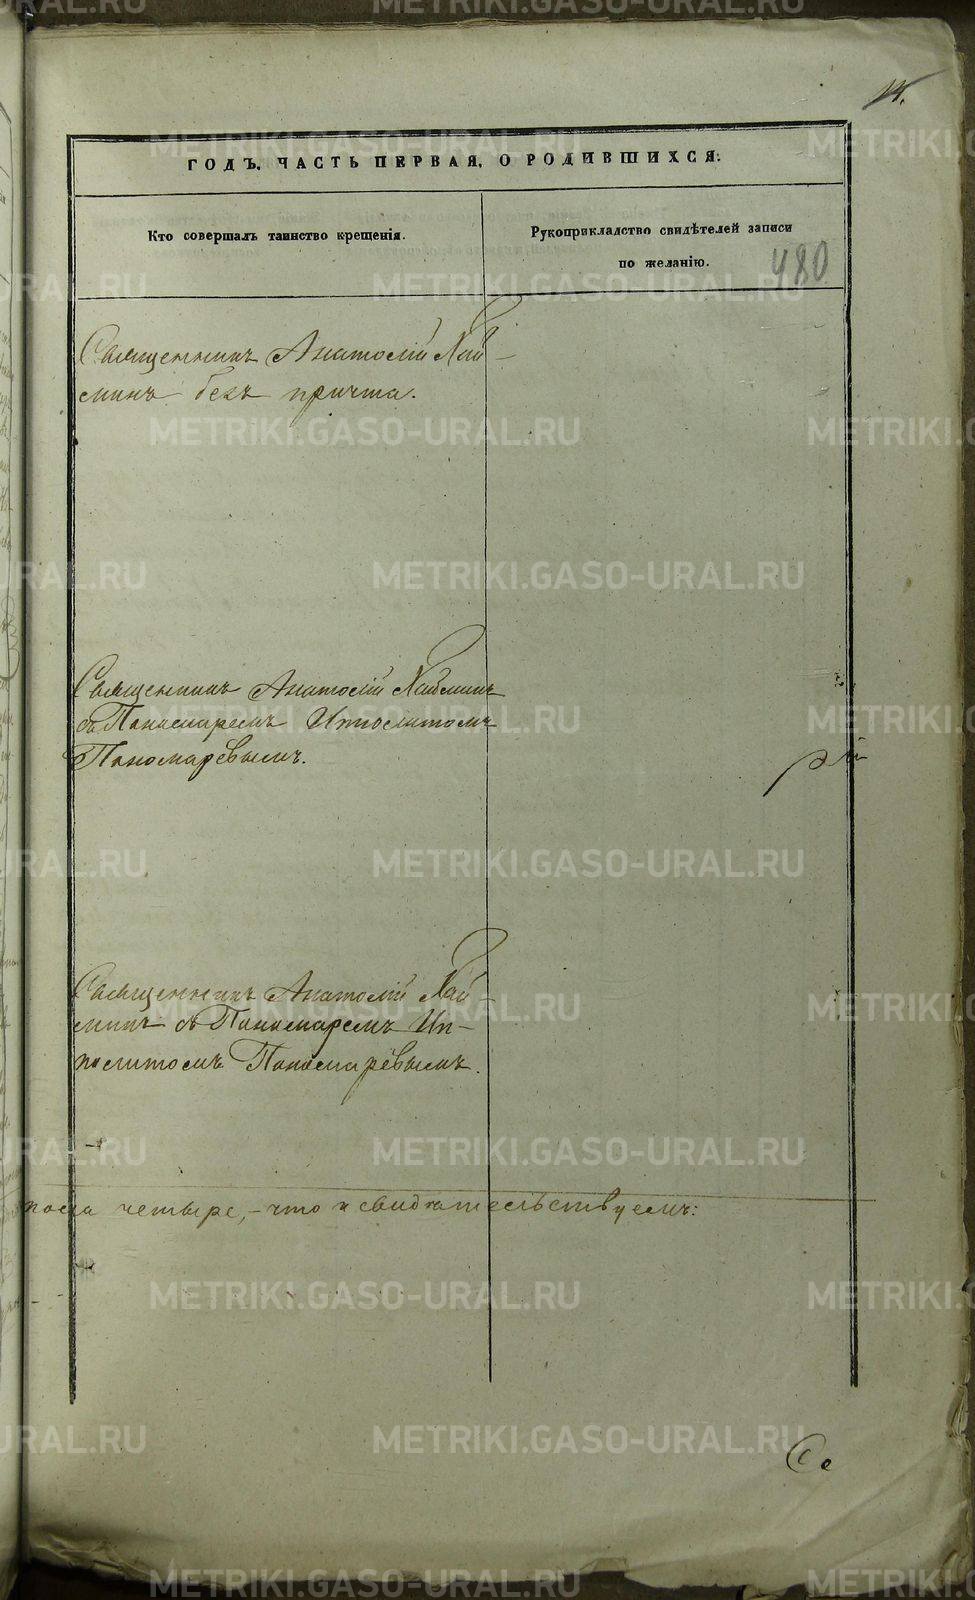 14.
ГОДЪ. ЧАСТЬ ПЕРВАЯ, О РОДИВШИХСЯ.
Кто совершалъ таинство крещенія.
Рукоприкладство свидѣтелей записи
по желанію.
480
Священникъ Анатолій Хай-
минъ безъ причта.
Священникъ Анатолій Хайминъ
съ Пономаремъ Ипполитомъ
Пономаревымъ.
Священникъ Анатолій Хай-
минъ съ Пономаремъ Ип-
политомъ Пономаревымъ.
четыре, - что и свидѣтельствуемъ:
Се
METRIKI.GASO-URAL.RU